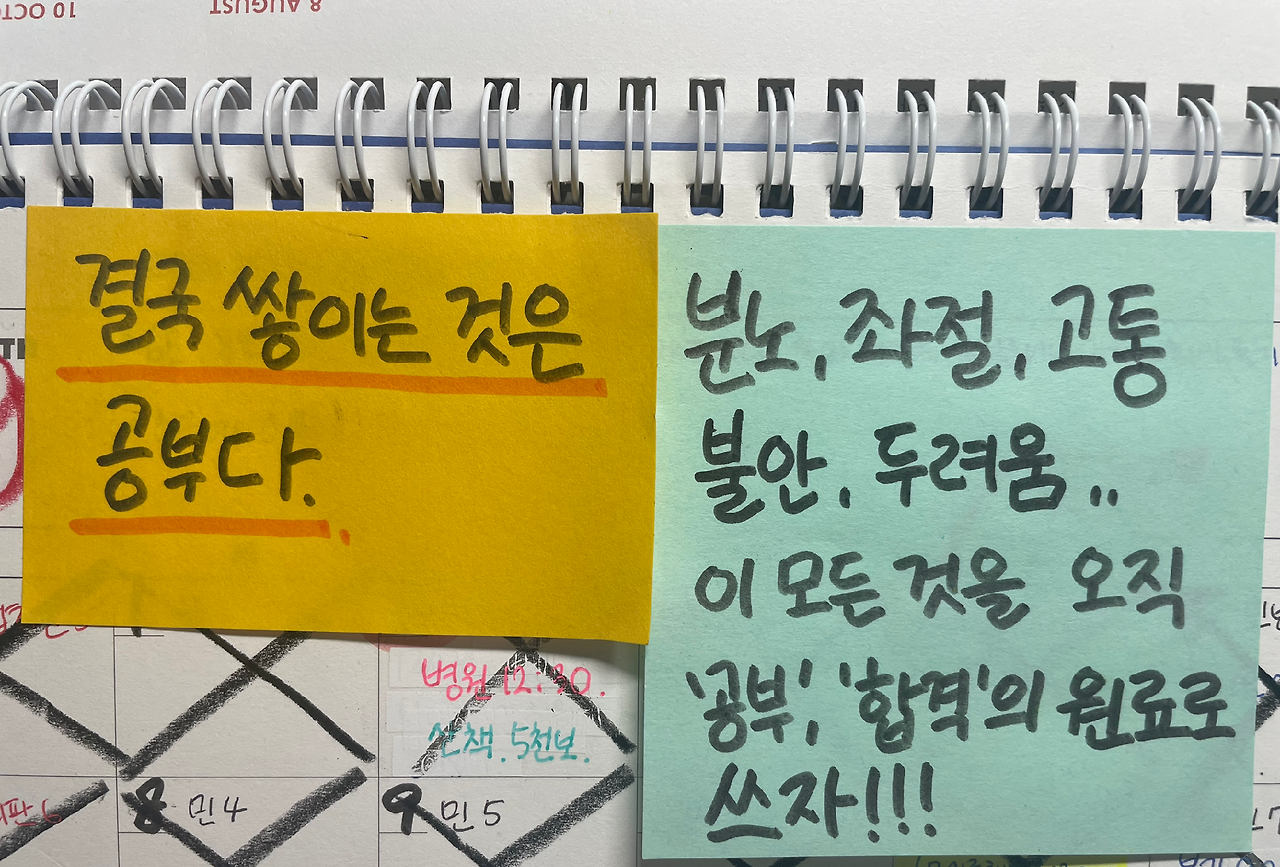 10 OCTO
8 AUGUST
결국 쌓이는 것은
공부다.
분노, 좌절, 고통
불안, 두려움..
이 모든 것을 오직
'공부', '합격'의 원료로
쓰자!!!
병원 12:30.
산책. 5천보.
8 민4
9 민5